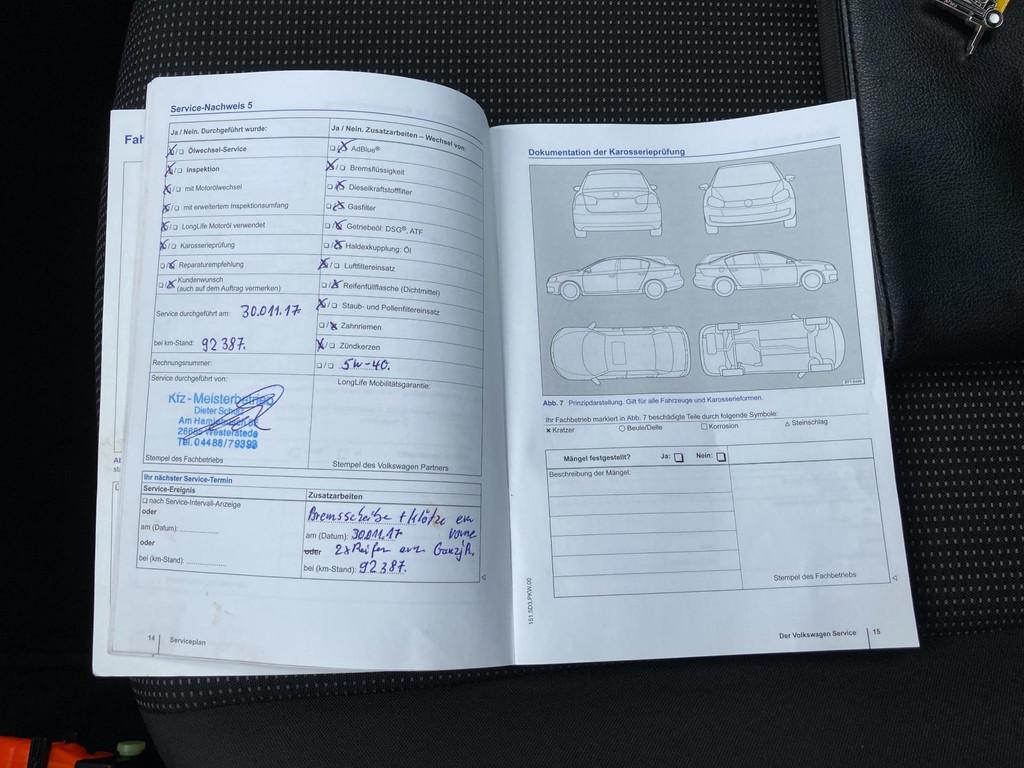 Fah
Service-Nachweis 5
Ja / Nein. Durchgeführt wurde:
Ja / Nein. Zusatzarbeiten – Wechsel von:
Ölwechsel-Service
AdBlue®
Inspektion
Bremsflüssigkeit
mit Motorölwechsel
Dieselkraftstofffilter
mit erweitertem Inspektionsumfang
Gasfilter
LongLife Motoröl verwendet
Getriebeöl: DSG®, ATF
Karosserieprüfung
Haldexkupplung: Öl
Reparaturempfehlung
Luftfiltereinsatz
Kundenwunsch
(auch auf dem Auftrag vermerken)
Reifenfüllflasche (Dichtmittel)
Service durchgeführt am: 30.011.17
Staub- und Pollenfiltereinsatz
Zahnriemen
bei km-Stand: 92387.
Zündkerzen
Rechnungsnummer:
5W-40.
Service durchgeführt von:
LongLife Mobilitätsgarantie:
Kfz-Meisterbetrieb
Dieter
Am
Westerstede
Tel. 04488/79393
Stempel des Fachbetriebs
Stempel des Volkswagen Partners
Ihr nächster Service-Termin
Service-Ereignis
Zusatzarbeiten
nach Service-Intervall-Anzeige
oder
am (Datum):
oder
bei (km-Stand):
Bremsscheibe + Klötze ern
vorne
am (Datum): 30.011.17
oder 2x Reifen ern. GanzjR.
bei (km-Stand): 92387.
14 | Serviceplan
Dokumentation der Karosserieprüfung
Abb. 7 Prinzipdarstellung. Gilt für alle Fahrzeuge und Karosserieformen.
Ihr Fachbetrieb markiert in Abb. 7 beschädigte Teile durch folgende Symbole:
Kratzer Beule/Delle Korrosion Steinschlag
Mängel festgestellt? Ja: Nein:
Beschreibung der Mängel:
Stempel des Fachbetriebs
151.5D3.PKW.00
Der Volkswagen Service | 15